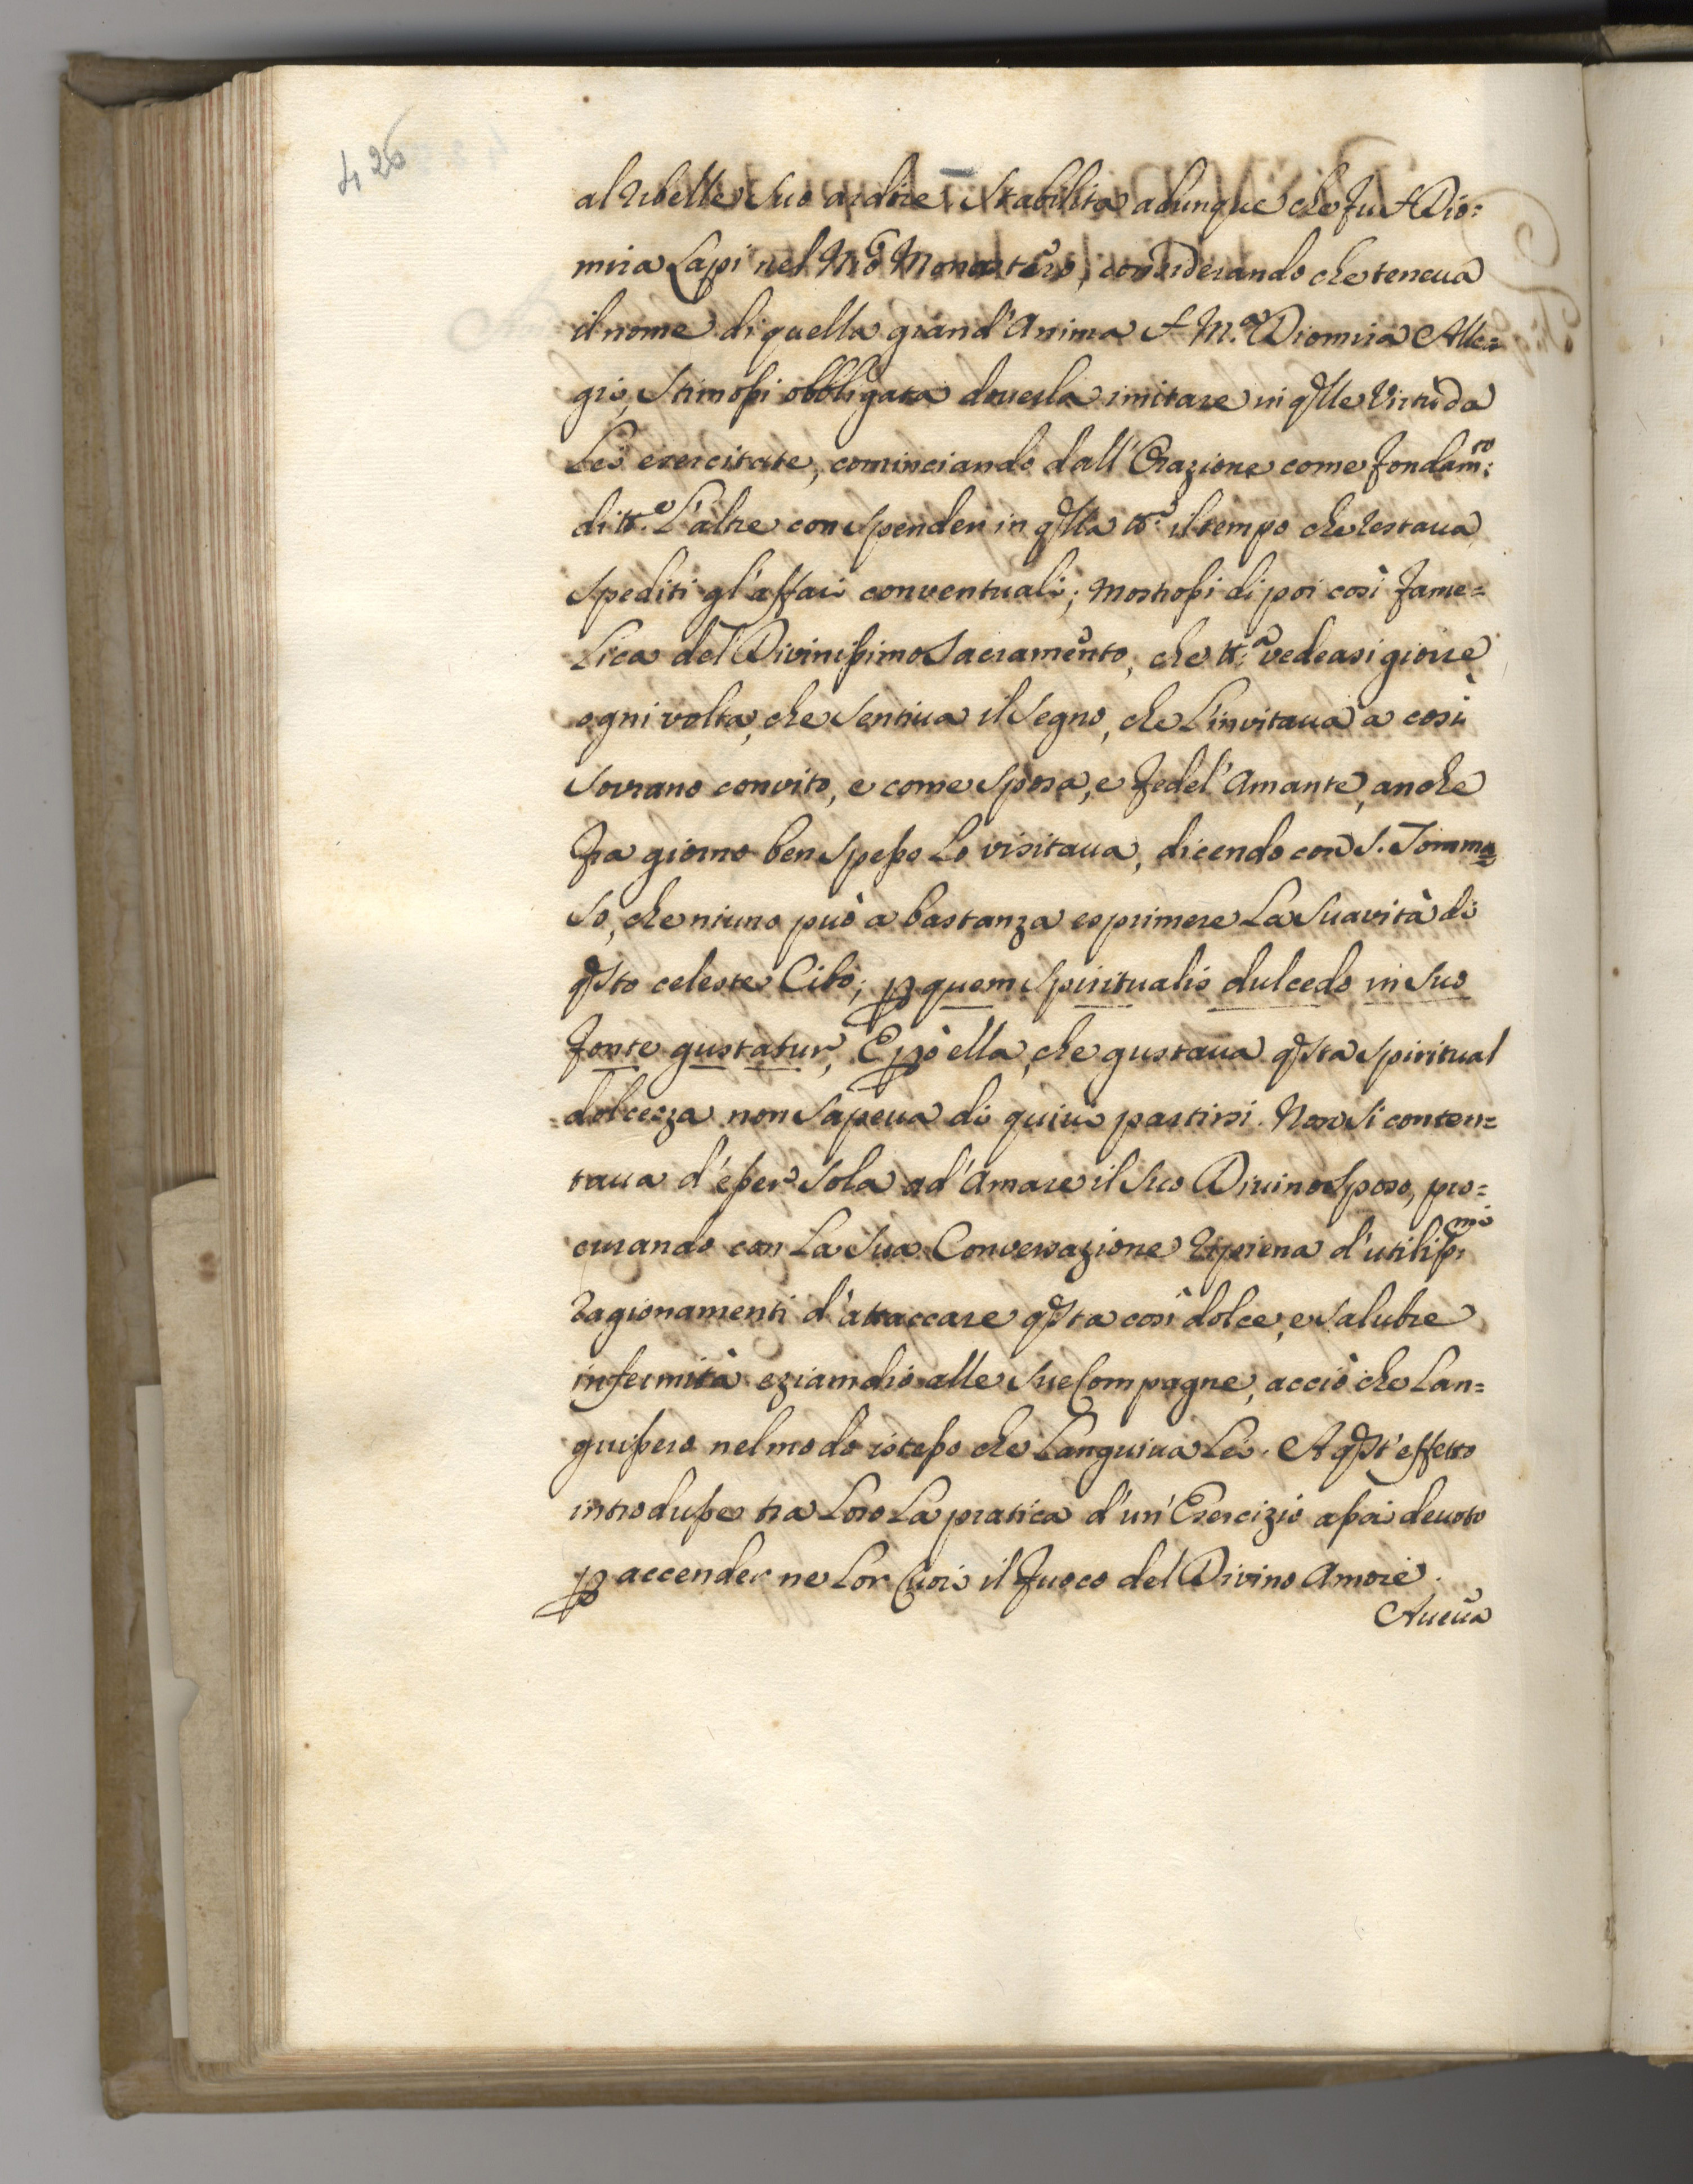 426
al ribelle suo ardire. Stabilita adunque che fu S. Dio=
mira Lapi nel Nro Monastero, considerando che teneua
il nome di quella grand'Anima S. M.a Diomira Alle=
gri, stimossi obbligata douerla imitare in qlle Virtù da
Lei exercitate, cominciando dall'Orazione come fondam:to
di tt.e L'altre con spender in qlla tt.o il tempo che restaua
spediti gl'affari conventuali; Mostrossi di poi così fame=
Lica del Divinissimo Sacramento, che tt:a vedeasi gioire
ogni volta, che sentiua il segno, che L'invitaua a così
sovrano convito, e come sposa, e fedel'Amante, anche
fra giorno ben spesso Lo visitaua, dicendo con S. Tomma=
so, che niuno può a bastanza esprimere La suavità di
qsto celeste Cibo; p quem spiritualis dulcedo in suo
fonte gustatur, E pò ella, che gustaua qsta spiritual
=dolcezza non sapeua di quiui partirsi. Non si conten=
taua d'esser sola ad'Amare il suo Diuino sposo, pro=
curando con La sua Conversazione ripiena d'utiliss:mi
ragionamenti d'attaccare qsta così dolce, e salubre
infermità eziamdio alle sue Compagne, acciò che Lan=
guissero nel modo istesso che Languiua Lei. A qst'effetto
introdusse tra Loro La pratica d'un'Exercizio assai deuoto
p accender ne Lor Cuori il fuoco del Divino Amore.
Aueua